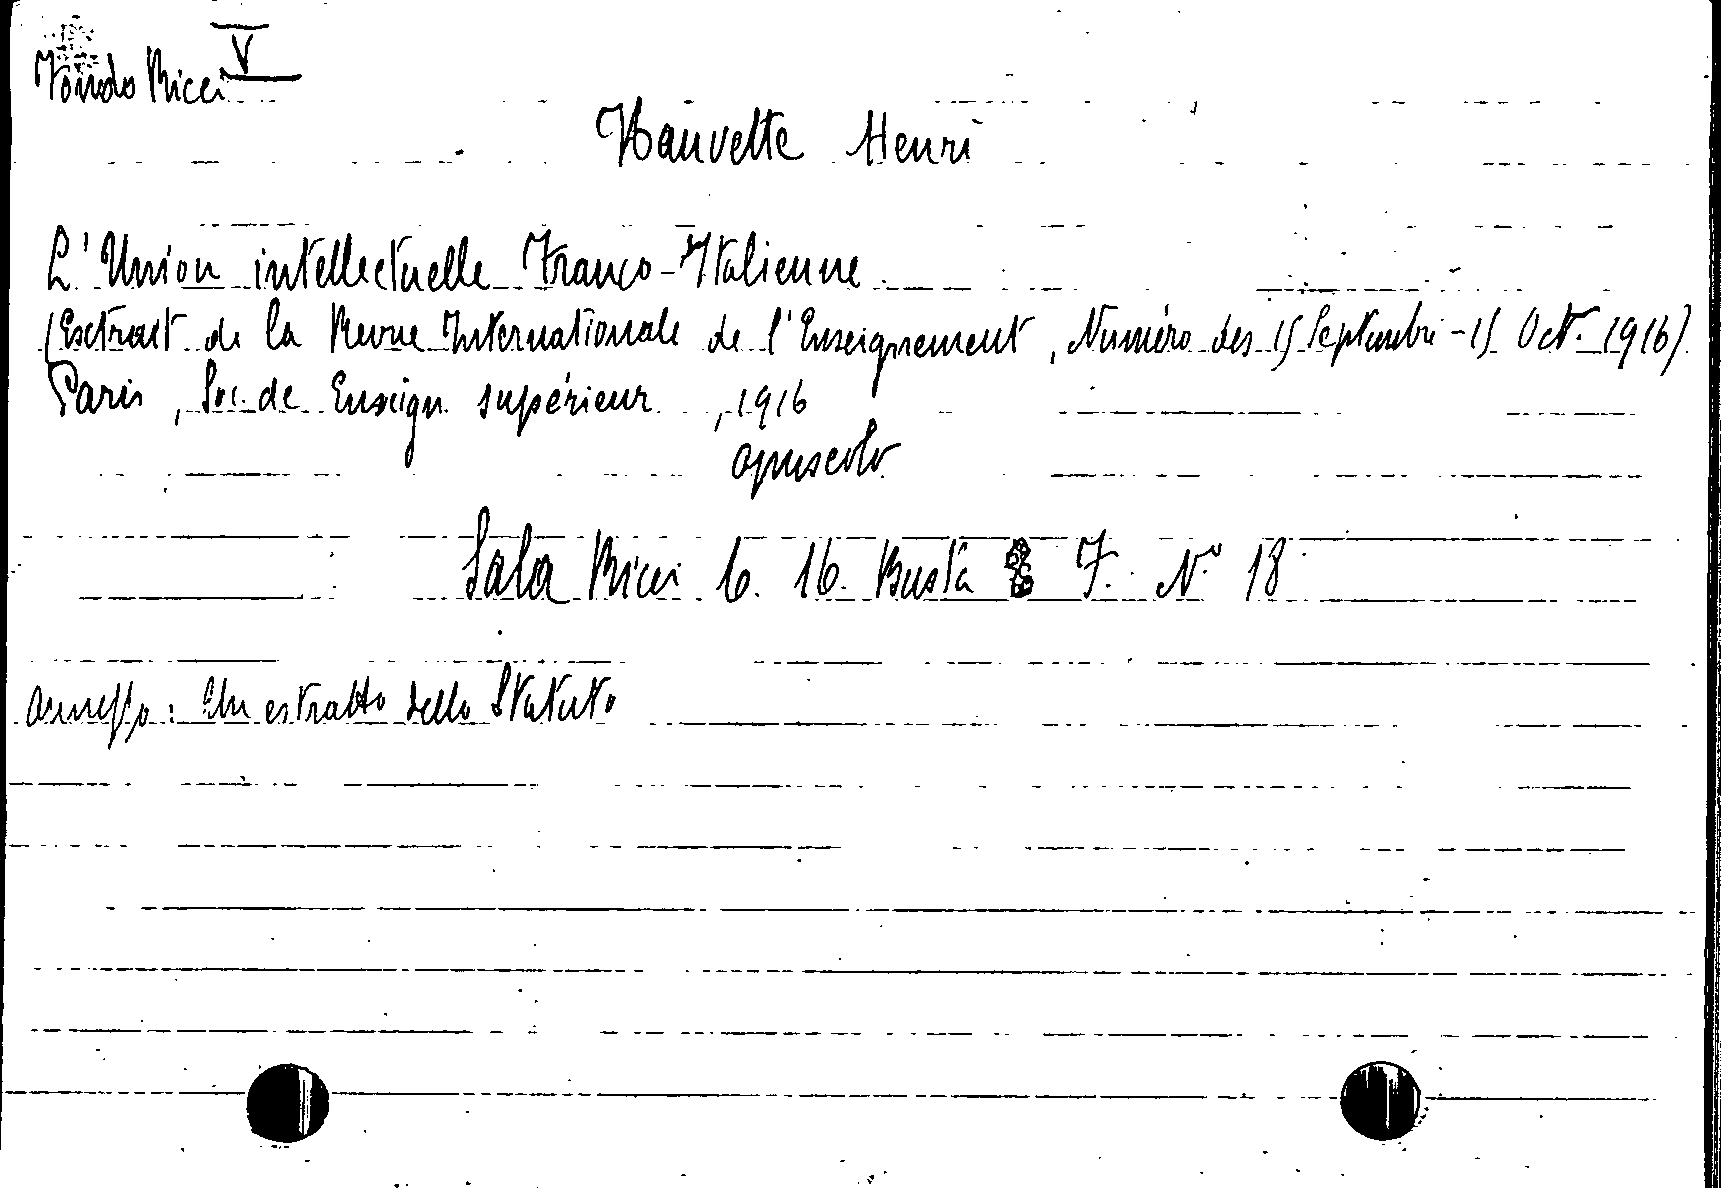 Fondo Ricci V
Hauvette Henri
L'Union intellectuelle Franco-Italienne
(Extrait de la Revue Internationale de l'Enseignement, Numéro des 15 Septembre - 15 Oct. 1916)
Paris, Soc. de Enseign supérieur, 1916
opuscolo
Sala Ricci 6. 16. Busta F. N.º 18
annesso: Un estratto dello Statuto